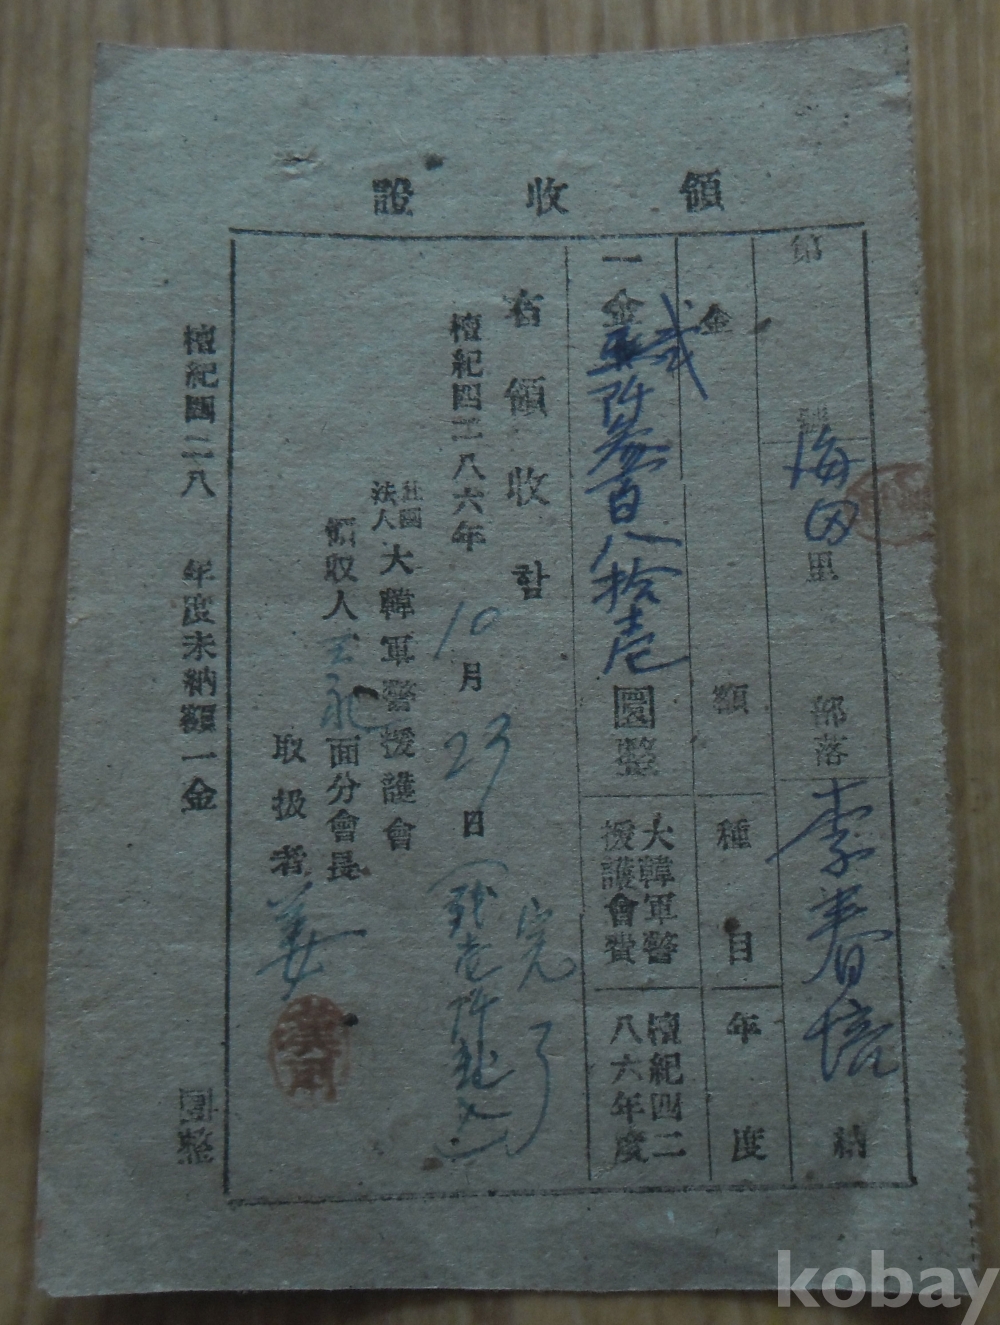 領收證
第 號 海田里 部落 李春培 納
金 額 種目 年度
一金 貳阡參百八拾壱圜整 大韓軍警援護會費 檀紀四二八六年度
右領收함
檀紀四二八六年 10月 23日
完了
社團法人 大韓軍警援護會
領收人 面分會長
取扱者 姜
檀紀四二八 年度未納額一金 圜整
kobay